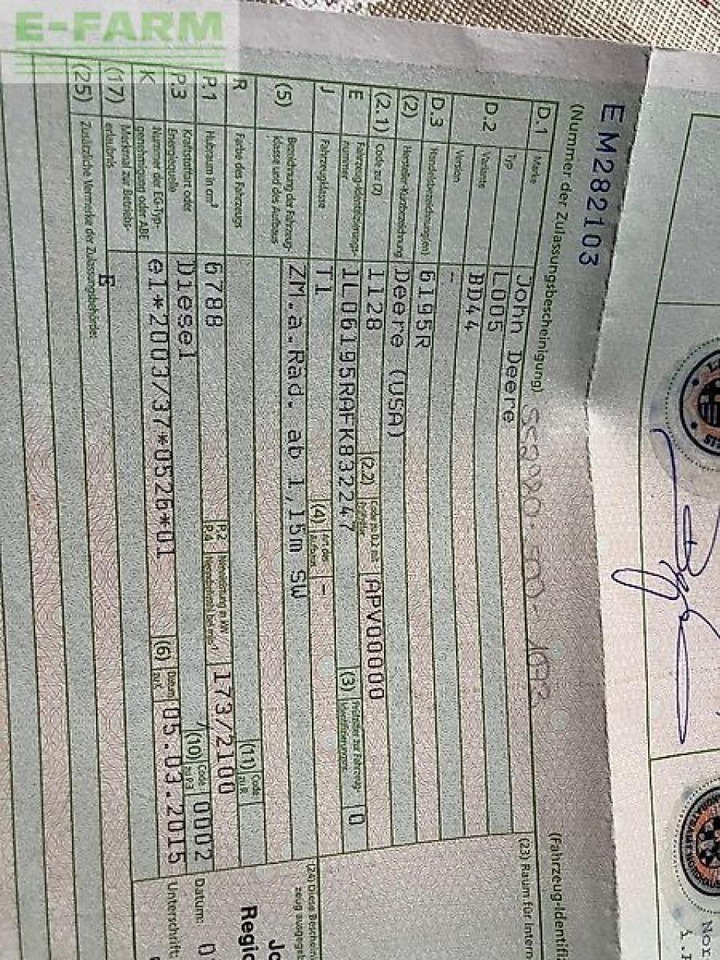 E-FARM
EM282103
(Nummer der Zulassungsbescheinigung)
(Fahrzeug-Identifi
D.1 Marke John Deere
(23) Raum für Intern
D.2 Typ L005
Variante BD44
Version -
D.3 Handelsbezeichnung(en) 6195R
(2) Hersteller-Kurzbezeichnung Deere (USA)
(2.1) Code zu (2) 1128 (2.2) Code zu D.2 mit APV00000
E Fahrzeug-Identifizierungs-nummer 1L06195RAFK832247 (3) Prüfziffer zur Fahrzeug-Identifizierungsnummer 0
J Fahrzeugklasse T1 (4) Art des Aufbaus -
(5) Bezeichnung der Fahrzeug-klasse und des Aufbaus ZM.a.Räd. ab 1,15m SW
(24) Diese Beschein
zeug ausgegeb
R Farbe des Fahrzeugs (11) Code zu R
P.1 Hubraum in cm³ 6788 P.2 P.4 Nennleistung in kW Nenndrehzahl bei min-1 173/2100
P.3 Kraftstoffart oder Energiequelle Diesel (10) Code zu P.3 0002
K Nummer der EG-Typ-genehmigung oder ABE e1*2003/37*0526*01 (6) Datum zu K 05.03.2015
(17) Merkmal zur Betriebs-erlaubnis E
(25) Zusätzliche Vermerke der Zulassungsbehörde:
Jo
Regio
Datum: 0
Unterschrift:
Nor
i.